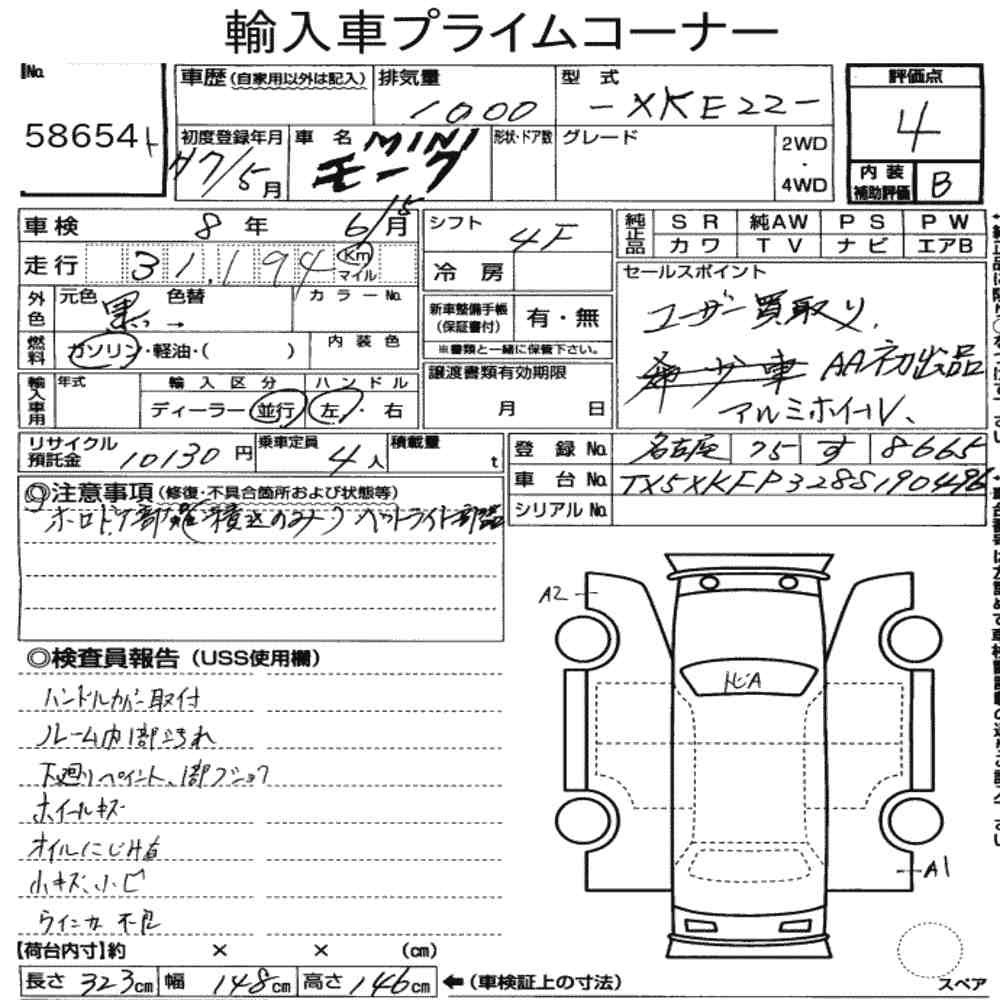 輸入車プライムコーナー
No.
58654
車歴(自家用以外は記入)
排気量
1000
型 式
-XKE22-
評価点
4
初度登録年月
H7/5月
車 名
MINI
モーク
形状・ドア数
グレード
2WD
・
4WD
内 装
補助評価
B
車検 8年 6/15月
シフト
4F
純正品
SR 純AW PS PW
カワ TV ナビ エアB
走行 31,194 km
マイル
冷 房
セールスポイント
ユーザー買取り、
AA初出品
アルミホイール、
外色
元色 黒 色替 →
カラーNo.
新車整備手帳
(保証書付)
有・無
※書類と一緒に保管下さい。
燃料
ガソリン・軽油・( )
内 装 色
輸入車用
年式
輸 入 区 分
ディーラー・並行
ハ ン ド ル
左・右
譲渡書類有効期限
月 日
リサイクル
預託金
10130円
乗車定員
4人
積載量
t
登 録 No. 名古屋 75 す 8665
車 台 No. TX5XKFP328S190496
シリアルNo.
◎注意事項(修復・不具合箇所および状態等)
ホロドア部難(積込のみ) ヘッドライト部品
◎検査員報告(USS使用欄)
ハンドルカバー取付
ルーム内1部汚れ
下廻りペイント、1部ブション
ホイールキズ
オイルにじみ有
小キズ、小ヒ
ウインカー不良
A2
トビA
A1
【荷台内寸】約 × × (cm)
長さ 323cm 幅 148cm 高さ 146cm ←(車検証上の寸法)
スペア